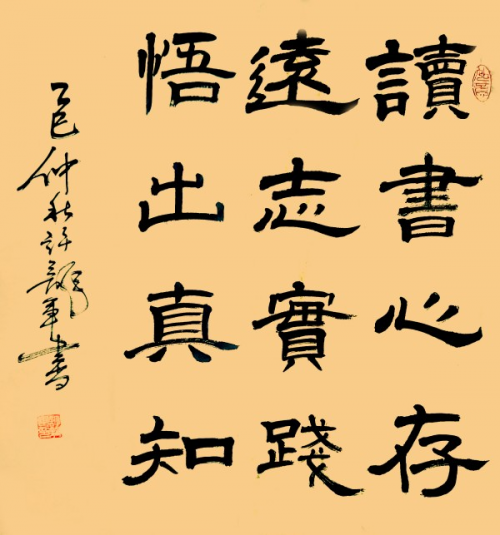 讀書心存
遠志實踐
悟出真知
乙巳仲秋許韶軍書